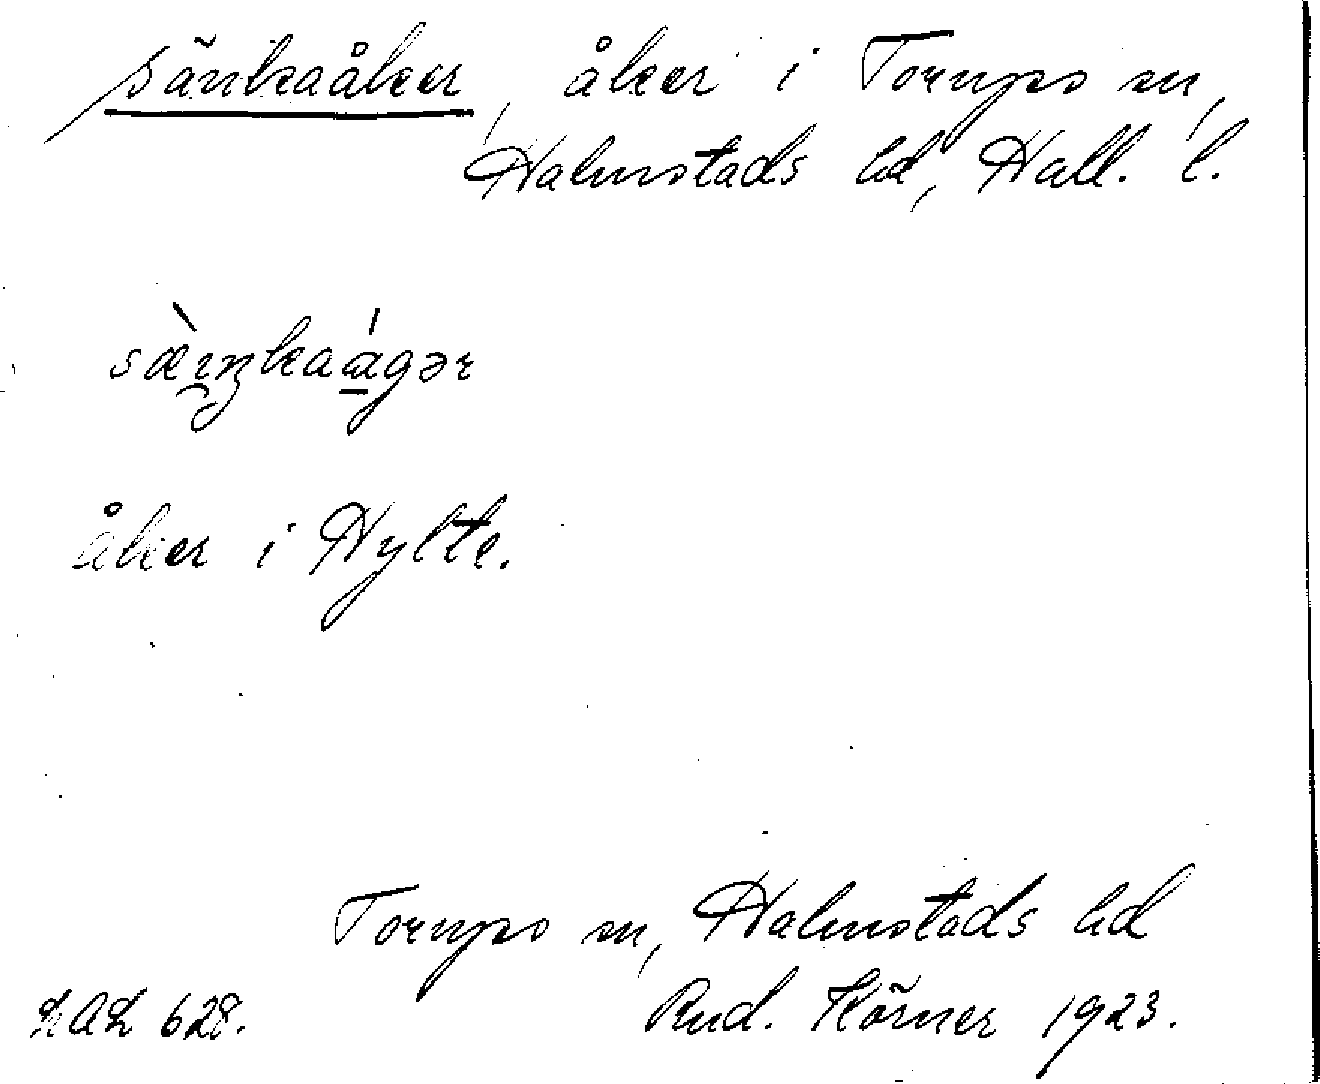 sänkaåker, åker i Torups sn,
Halmstads hd, Hall. l.
åker i Hylte.
Torups sn, Halmstads hd
Rud. Körner 1923.
LAL 628.